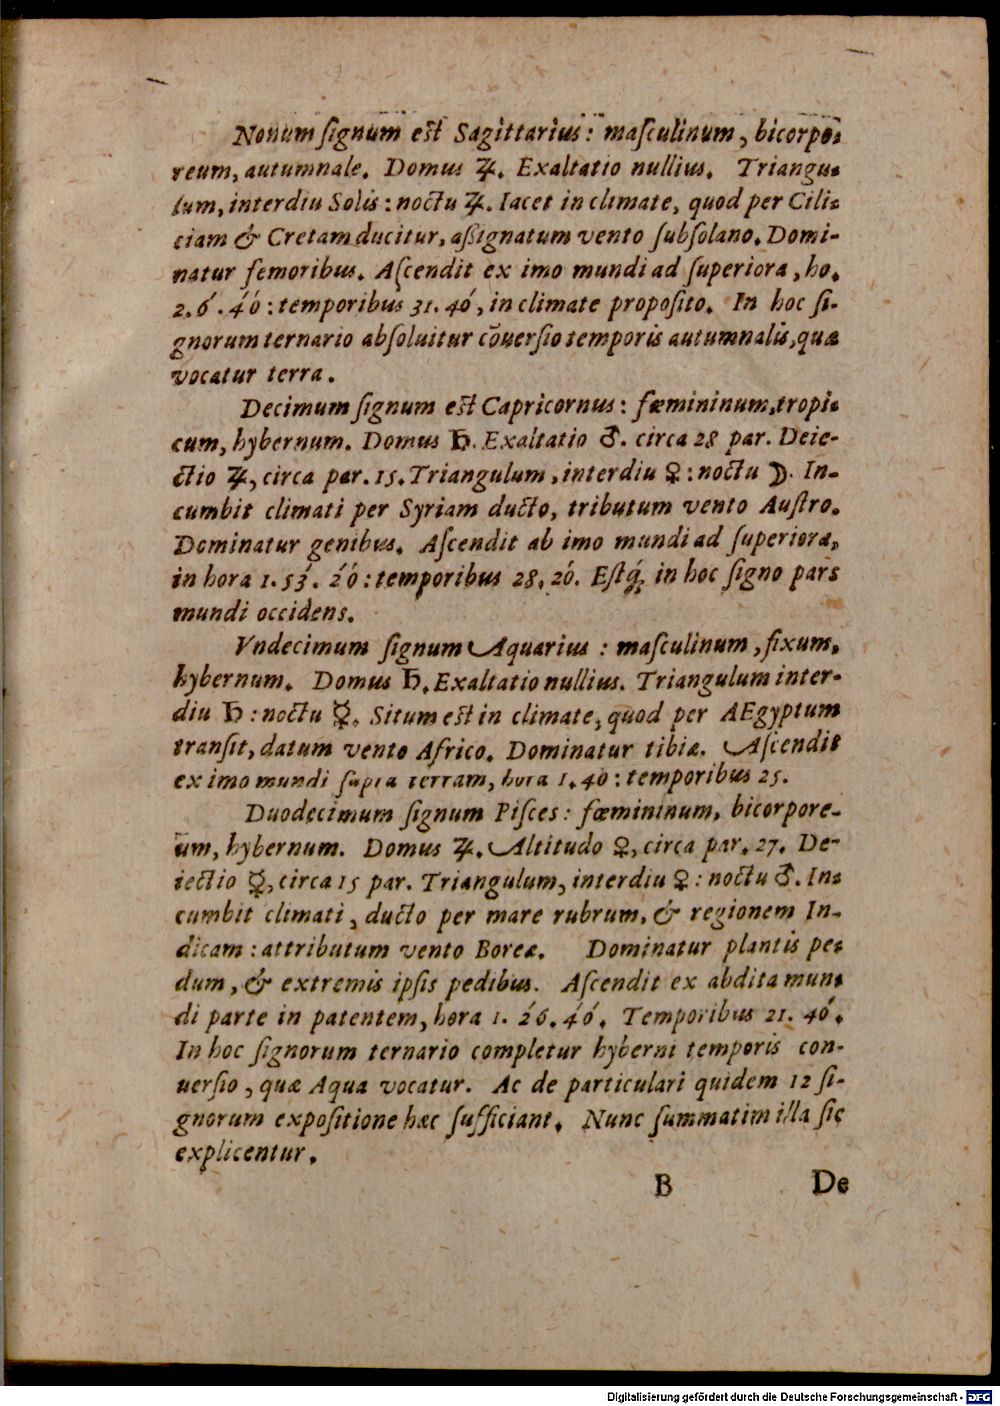 Nonum ſignum eſt Sagittarius: maſculinum, bicorpo⸗
reum, autumnale. Domus ♃. Exaltatio nullius. Triangu⸗
lum, interdiu Solis: noctu ♃. Iacet in climate, quod per Cili⸗
ciam & Cretam ducitur, aßignatum vento ſubſolano. Domi-
natur femoribus. Aſcendit ex imo mundi ad ſuperiora, ho.
2. 6́. 4́ó: temporibus 31. 40́, in climate propoſito. In hoc ſi-
gnorum ternario abſoluitur cõuerſio temporis autumnalis, quæ
vocatur terra.
Decimum ſignum eſt Capricornus: fœmininum, tropi⸗
cum, hybernum. Domus ♄. Exaltatio ♂. circa 28 par. Deie-
ctio ♃, circa par. 15. Triangulum, interdiu ♀: noctu ☽. In-
cumbit climati per Syriam ducto, tributum vento Auſtro.
Dominatur genibus. Aſcendit ab imo mundi ad ſuperiora,
in hora 1. 53́. 2́ó: temporibus 28, 20́. Eſtq́; in hoc ſigno pars
mundi occidens.
Vndecimum ſignum Aquarius: maſculinum, fixum,
hybernum. Domus ♄. Exaltatio nullius. Triangulum inter-
diu ♄: noctu ☿. Situm eſt in climate, quod per AEgyptum
tranſit, datum vento Africo. Dominatur tibiæ. Aſcendit
ex imo mundi ſupra terram, hora 1. 40: temporibus 25.
Duodecimum ſignum Piſces: fœmininum, bicorpore-
um, hybernum. Domus ♃. Altitudo ♀, circa par. 27. De-
iectio ☿, circa 15 par. Triangulum, interdiu ♀: noctu ♂. In⸗
cumbit climati, ducto per mare rubrum, & regionem In-
dicam: attributum vento Boreæ. Dominatur plantis pe⸗
dum, & extremis ipſis pedibus. Aſcendit ex abdita mun⸗
di parte in patentem, hora 1. 2́6. 4́ó. Temporibus 21. 40́.
In hoc ſignorum ternario completur hyberni temporis con-
uerſio, quæ Aqua vocatur. Ac de particulari quidem 12 ſi-
gnorum expoſitione hæc ſufficiant. Nunc ſummatim illa ſic
explicentur.
B De
Digitalisierung gefördert durch die Deutsche Forschungsgemeinschaft - DFG